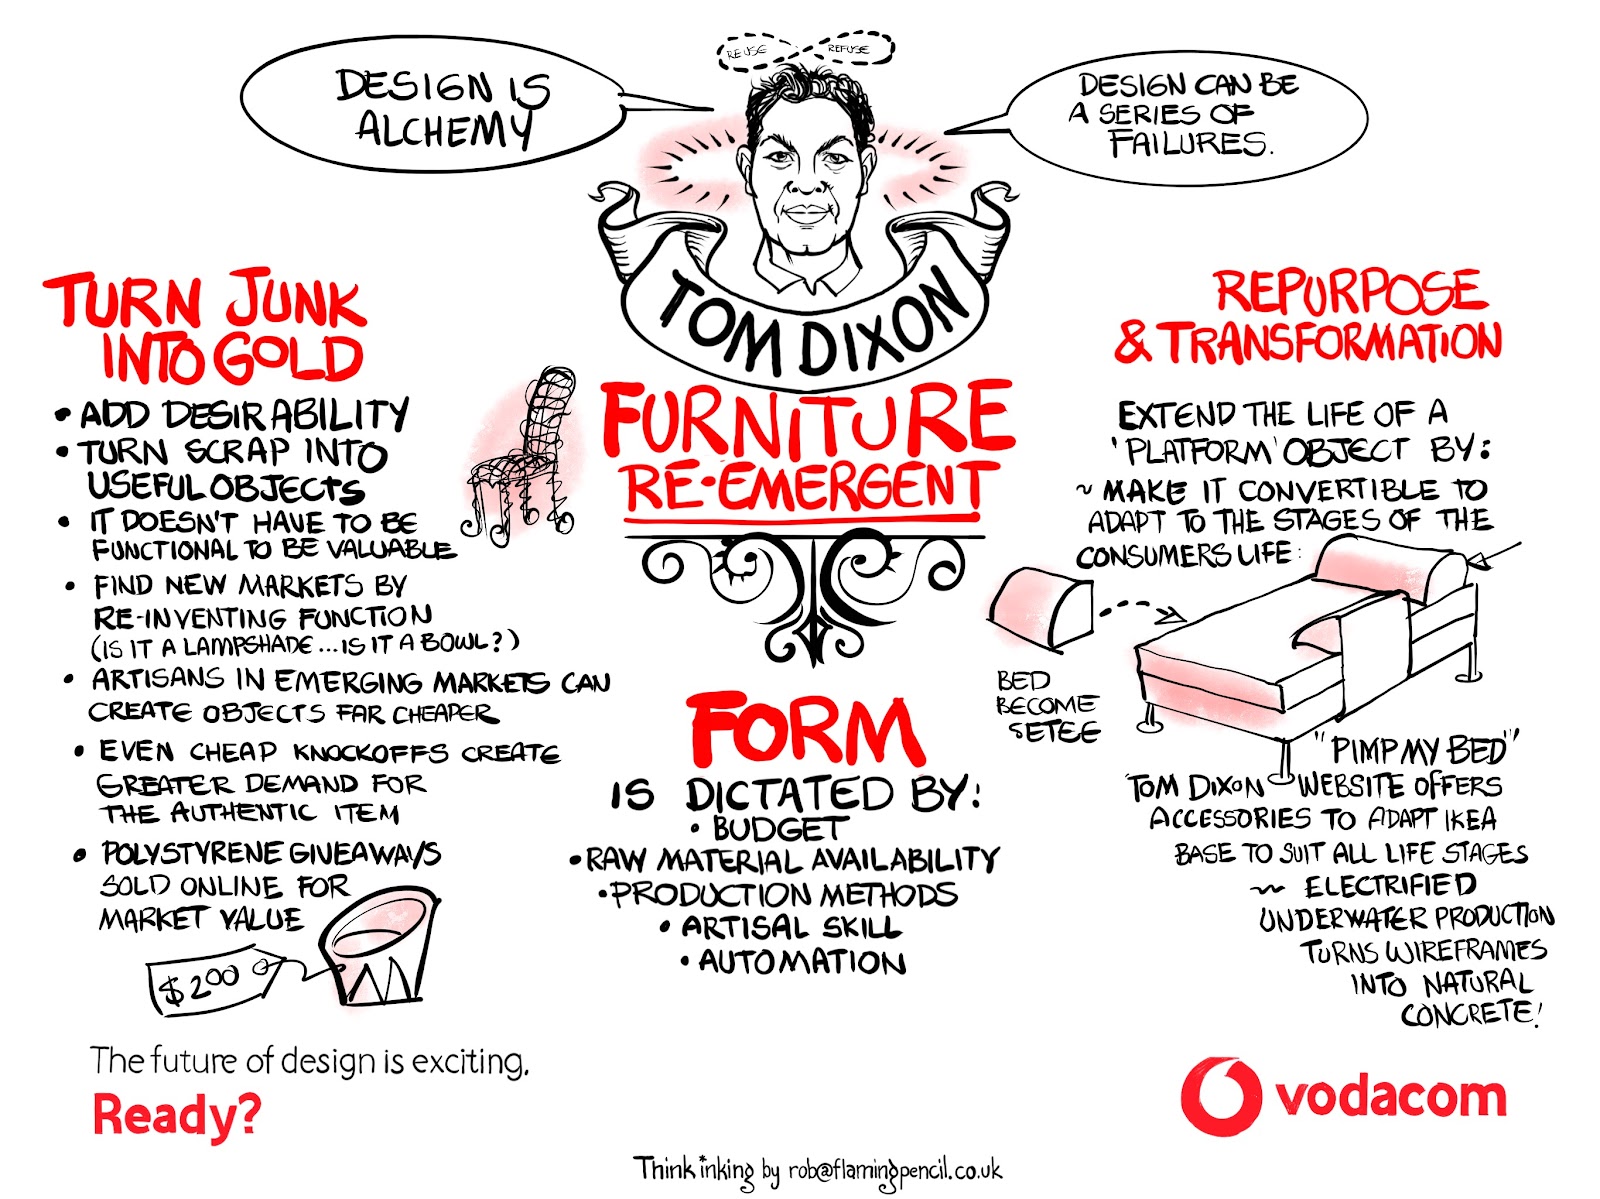 REUSE
REFUSE
DESIGN IS
ALCHEMY
DESIGN CAN BE
A SERIES OF
FAILURES.
TOM DIXON
FURNITURE
RE-EMERGENT
TURN JUNK
INTO GOLD
• ADD DESIRABILITY
• TURN SCRAP INTO
USEFUL OBJECTS
• IT DOESN'T HAVE TO BE
FUNCTIONAL TO BE VALUABLE
• FIND NEW MARKETS BY
RE-INVENTING FUNCTION
(IS IT A LAMPSHADE...IS IT A BOWL?)
• ARTISANS IN EMERGING MARKETS CAN
CREATE OBJECTS FAR CHEAPER
• EVEN CHEAP KNOCKOFFS CREATE
GREATER DEMAND FOR
THE AUTHENTIC ITEM
• POLYSTYRENE GIVEAWAYS
SOLD ONLINE FOR
MARKET VALUE
$200
FORM
IS DICTATED BY:
• BUDGET
• RAW MATERIAL AVAILABILITY
• PRODUCTION METHODS
• ARTISAL SKILL
• AUTOMATION
REPURPOSE
& TRANSFORMATION
EXTEND THE LIFE OF A
'PLATFORM' OBJECT BY:
~ MAKE IT CONVERTIBLE TO
ADAPT TO THE STAGES OF THE
CONSUMERS LIFE:
BED
BECOME
SETEE
"PIMP MY BED"
TOM DIXON WEBSITE OFFERS
ACCESSORIES TO ADAPT IKEA
BASE TO SUIT ALL LIFE STAGES
~ ELECTRIFIED
UNDERWATER PRODUCTION
TURNS WIREFRAMES
INTO NATURAL
CONCRETE!
The future of design is exciting.
Ready?
vodacom
Think*inking by rob@flamingpencil.co.uk